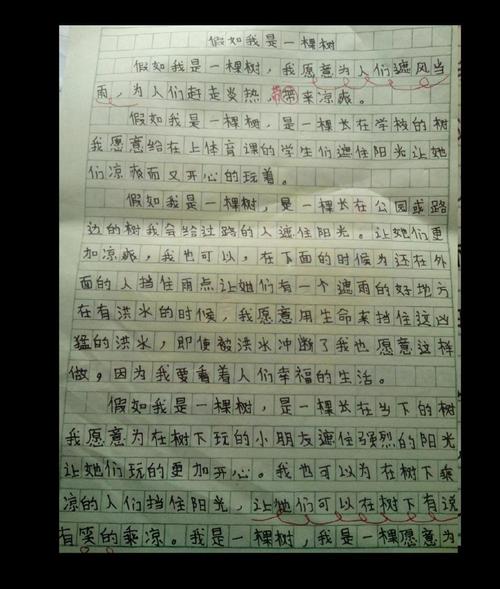 假如我是一棵树
假如我是一棵树，我愿意为人们遮风当
雨，为人们赶走炎热，带来凉爽。
假如我是一棵树，是一棵长在学校的树
我愿意给在上体育课的学生们遮住阳光让她
们凉爽而又开心的玩着。
假如我是一棵树，是一棵长在公园或路
边的树我会给过路的人遮住阳光。让她们更
加凉爽，我也可以，在下面的时候为还在外
面的人挡住雨点让她们有一个遮雨的好地方
在有洪水的时候，我愿意用生命来挡住这凶
猛的洪水，即使被洪水冲断了我也愿意这样
做，因为我要看着人们幸福的生活。
假如我是一棵树，是一棵长在当下的树
我愿意为在树下玩的小朋友遮住强烈的阳光
让她们玩的更加开心。我也可以为在树下乘
凉的人们挡住阳光，让她们可以在树下有说
有笑的乘凉。我是一棵树，我是一棵愿意为